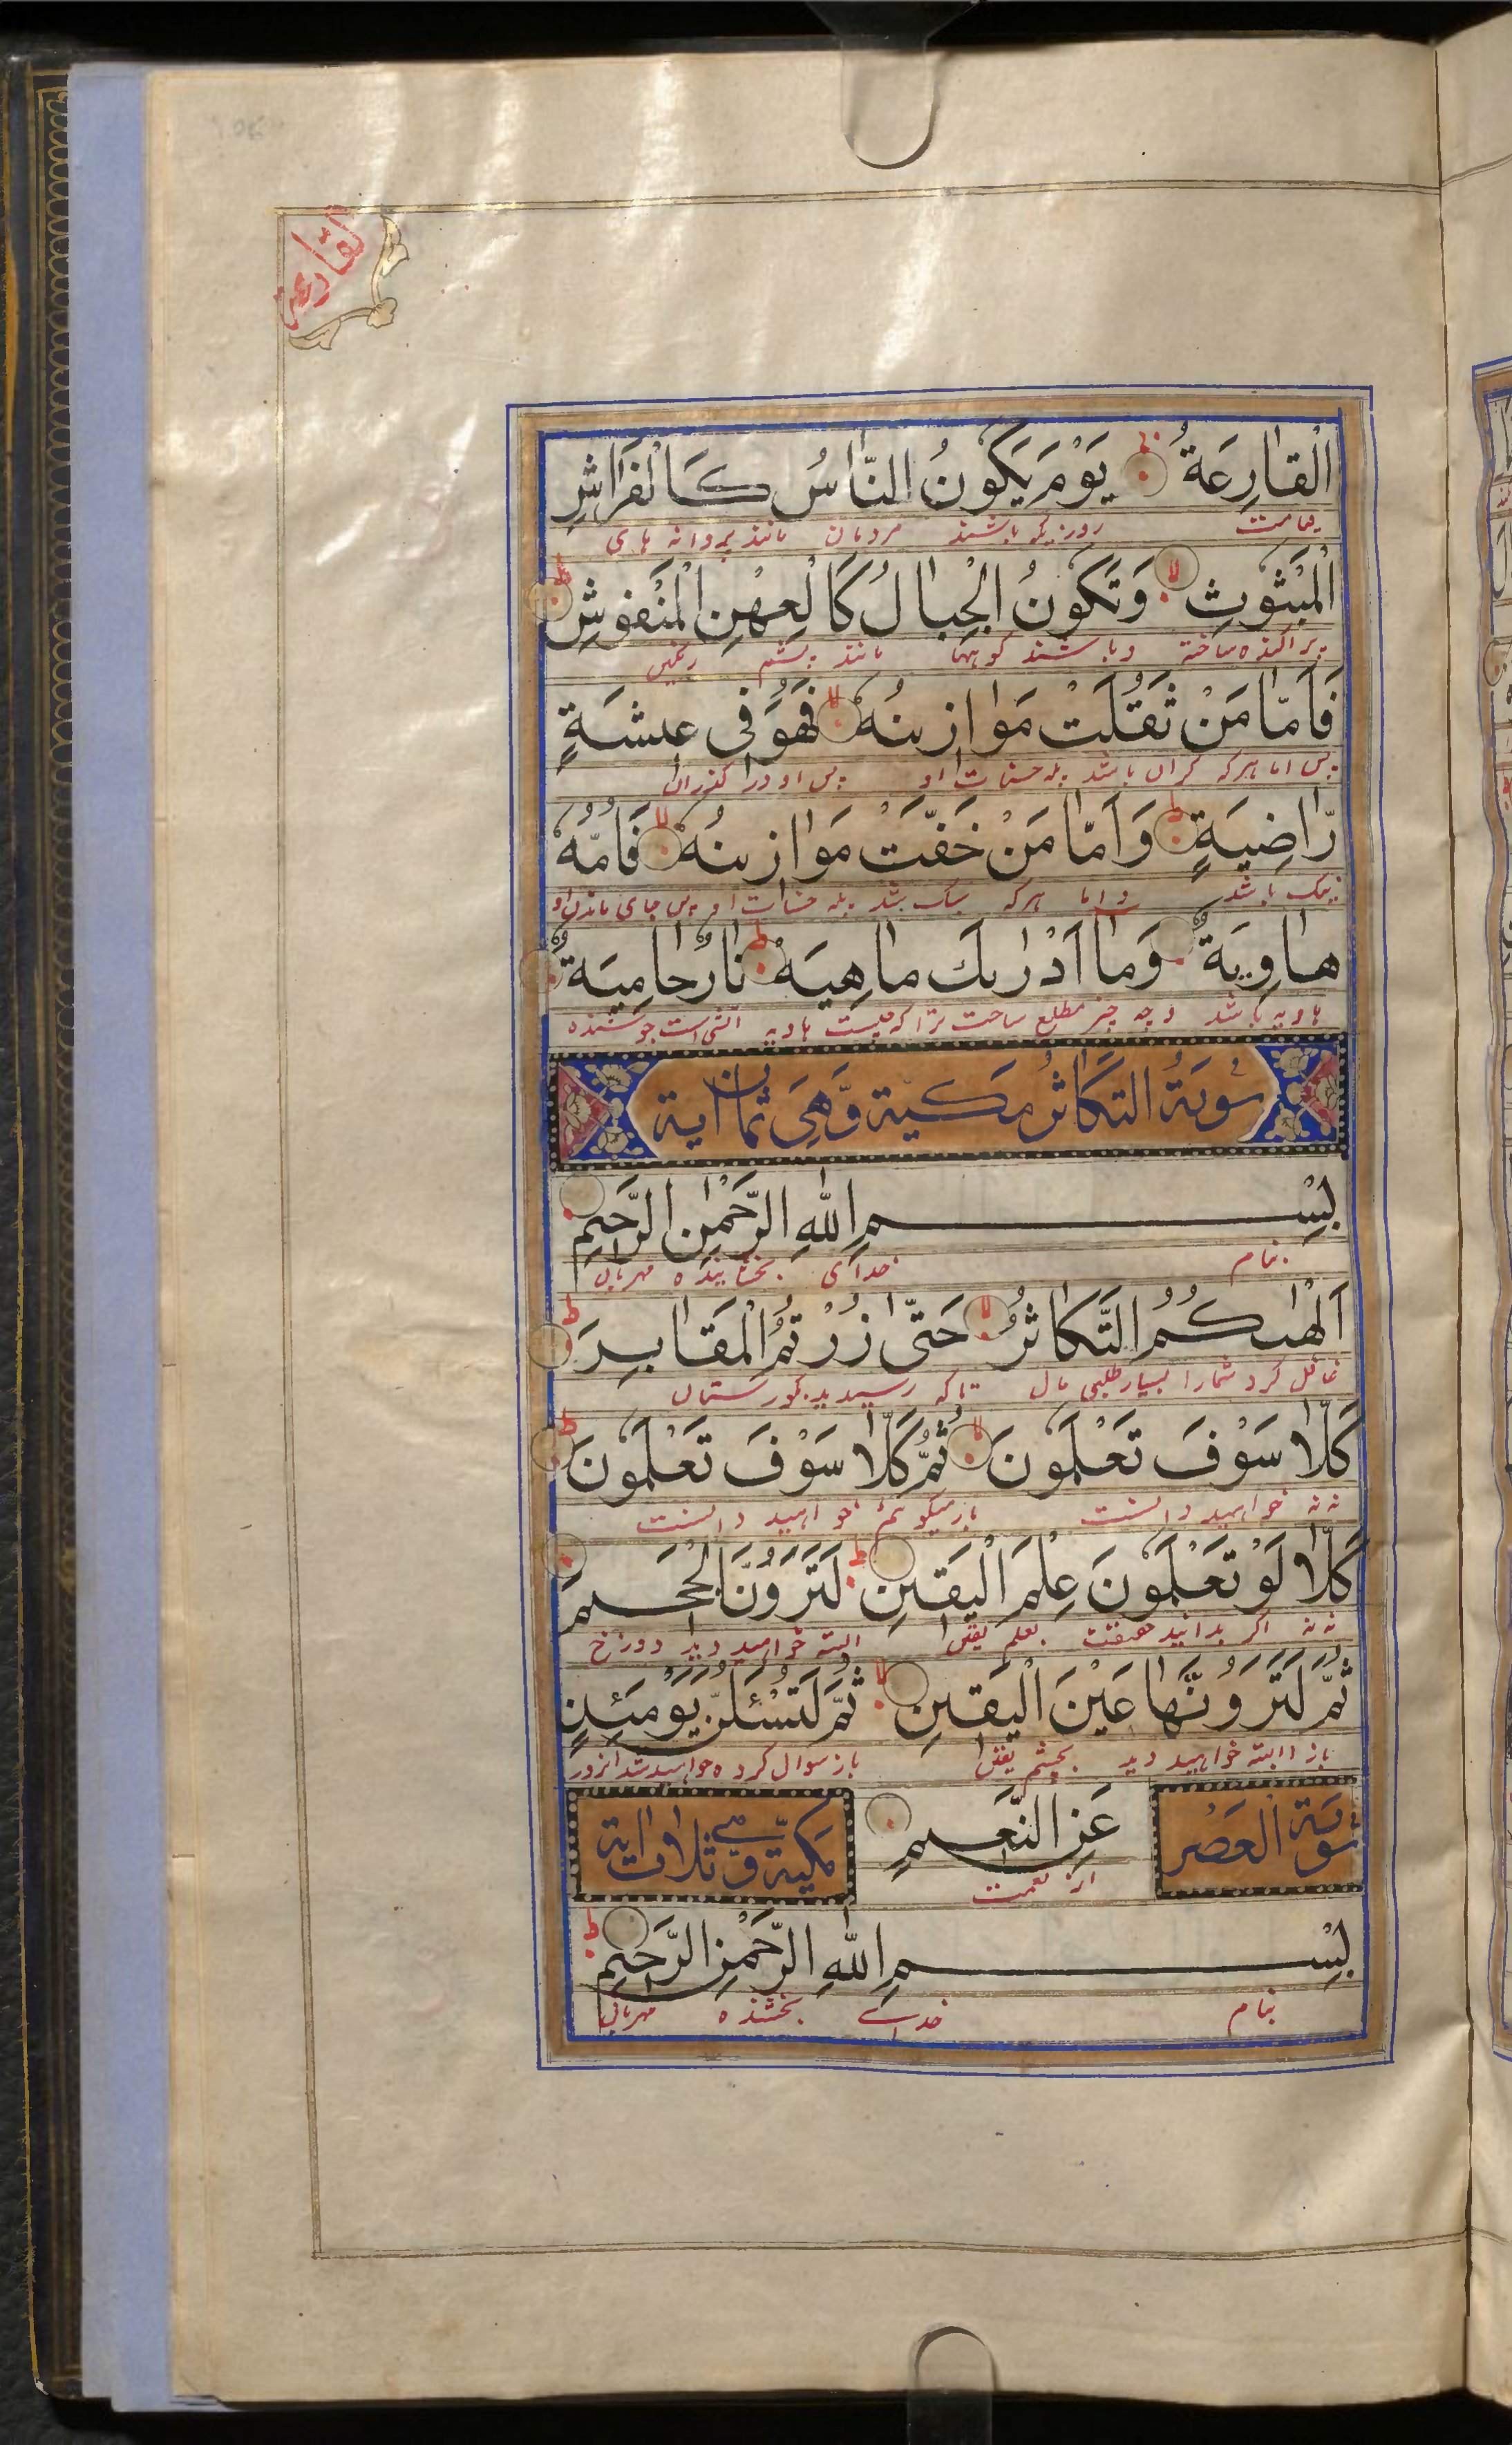 القارعة
الْقَارِعَةُ يَوْمَ يَكُونُ النَّاسُ كَالْفَرَاشِ
روزیکه باشند مردمان مانند پروانه های
الْمَبْثُوثِ وَتَكُونُ الْجِبَالُ كَالْعِهْنِ الْمَنْفُوشِ
پراکنده ساخته و باشند کوهها مانند پشم رنگین
فَاَمَّا مَنْ ثَقُلَتْ مَوَازِينُهُ فَهُوَ فِى عِيشَةٍ
پس اما هرکه گران باشد پله حسنات او پس او در گذران
رَّاضِيَةٍ وَاَمَّا مَنْ خَفَّتْ مَوَازِينُهُ فَاُمُّهُ
نیک باشد و اما هرکه سبک شد پله حسنات او پس جای ماندن او
هَاوِيَةٌ وَمَا اَدْرٰىكَ مَاهِيَهْ نَارٌ حَامِيَةٌ
هاویه باشد و چه چیز مطلع ساخت ترا که چیست هاویه آتش است جوشنده
سُورَةُ التَّكَاثُرِ مَكِّيَة وَّهِىَ ثَمَانُ اٰية
بِسْمِ اللهِ الرَّحْمٰنِ الرَّحِيْمِ
بنام خدای بخشاینده مهربان
اَلْهٰىكُمُ التَّكَاثُرُ حَتّٰى زُرْتُمُ الْمَقَابِرَ
غافل کرد شمارا بسیار طلبی مال تا که رسیدید بگورستان
كَلَّا سَوْفَ تَعْلَمُونَ ثُمَّ كَلَّا سَوْفَ تَعْلَمُونَ
نه نه خواهید دانست باز میگویم خواهید دانست
كَلَّا لَوْ تَعْلَمُونَ عِلْمَ الْيَقِينِ لَتَرَوُنَّ الْجَحِيمَ
نه نه اگر بدانید حقیقت بعلم یقین البته خواهید دید دوزخ
ثُمَّ لَتَرَوُنَّهَا عَيْنَ الْيَقِينِ ثُمَّ لَتُسْـَٔلُنَّ يَوْمَئِذٍ
باز البته خواهید دید بچشم یقین باز سوال کرده خواهید شد انروز
عَنِ النَّعِيمِ
از نعمت
سورة العصر مكية وّهى ثلاث اٰية
بِسْمِ اللهِ الرَّحْمٰنِ الرَّحِيْمِ
بنام خدای بخشنده مهربان